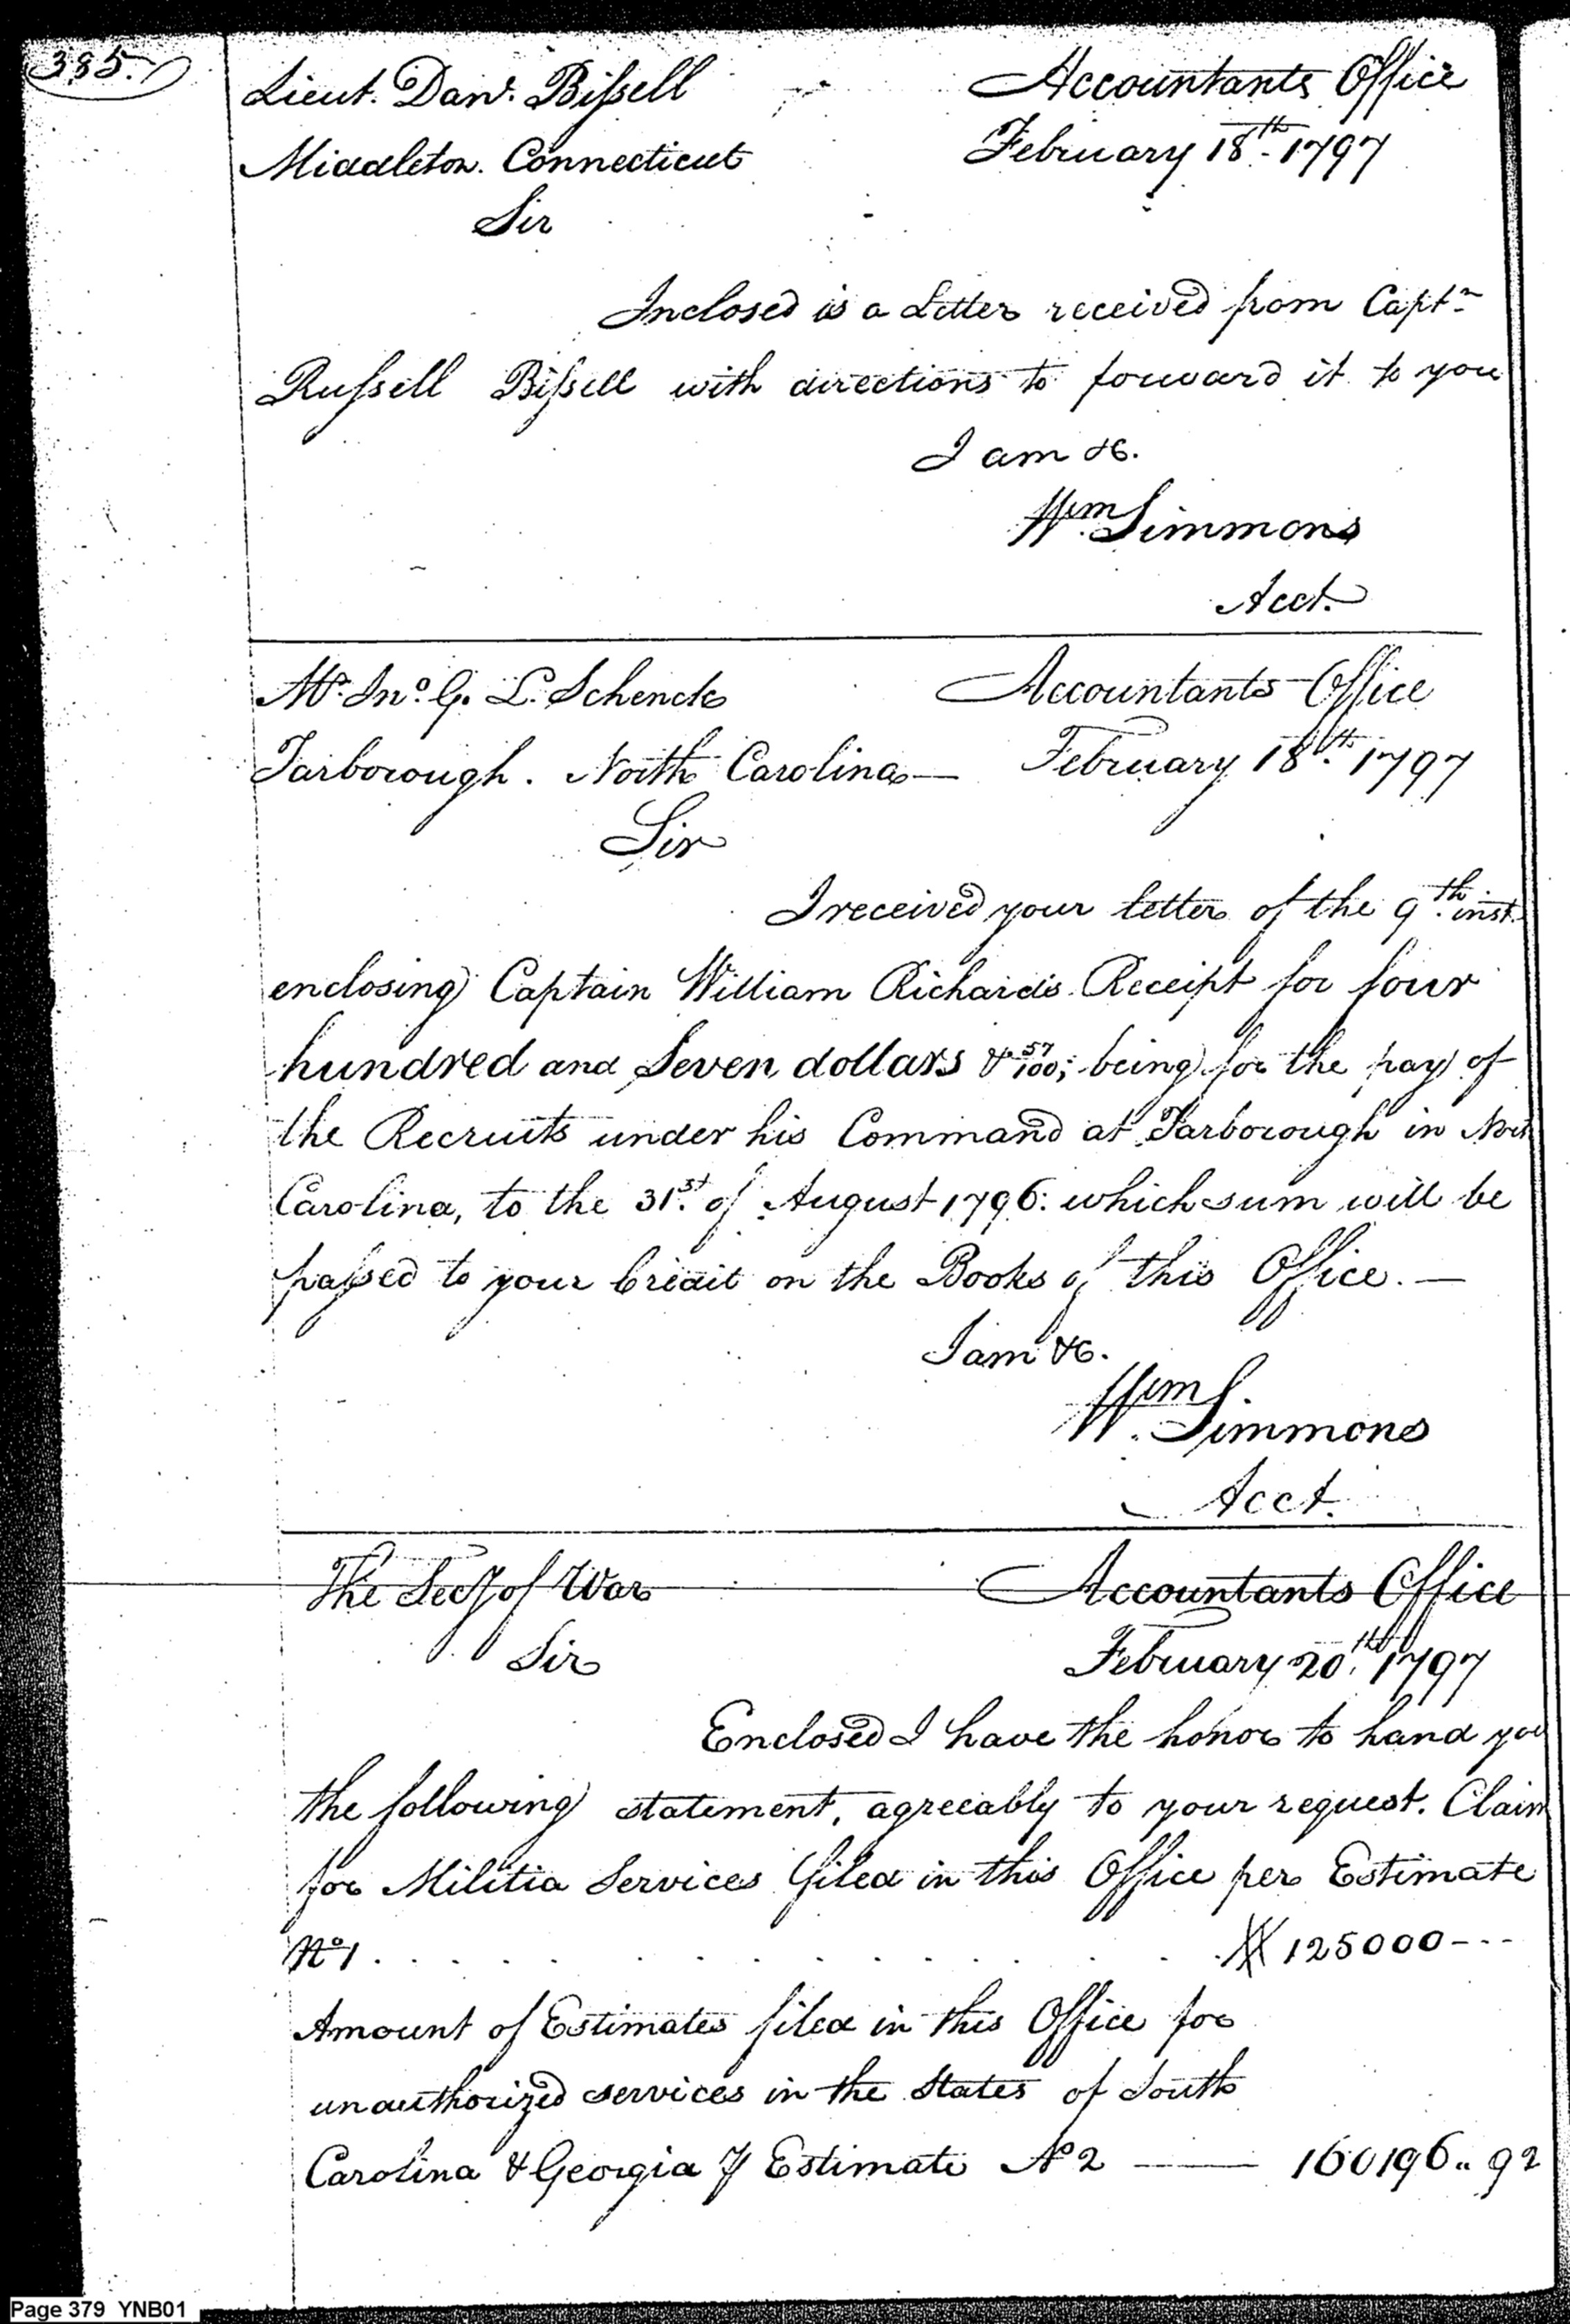 385.
Lieut. Danl. Bissell Accountants Office
Middleton. Connecticut February 18th. 1797
Sir
Inclosed is a Letter received from Captn
Russell Bissell with directions to forward it to you
I am &c.
Wm. Simmons
Acct.
Mr. Jno. G. L. Schenck Accountants Office
Tarborough. North Carolina— February 18th. 1797
Sir
I received your letter of the 9th. inst.
enclosing Captain William Richards Receipt for four
hundred and Seven dollars & 57/100; being for the pay of
the Recruits under his Command at Tarborough in North
Carolina, to the 31st. of August 1796: which sum will be
passed to your Credit on the Books of this Office.—
I am &c.
Wm. Simmons
Acct.
The Secy of War Accountants Office
Sir February 20th. 1797
Enclosed I have the honor to hand you
the following statement, agreeably to your request. Claim
for Militia Services filed in this Office per Estimate
No. 1 . . . . . . . . . . . . . $ 125000---
Amount of Estimates filed in this Office for
unauthorized services in the States of South
Carolina & Georgia ⅌ Estimate No 2 —— 160196.. 92
Page 379 YNB01